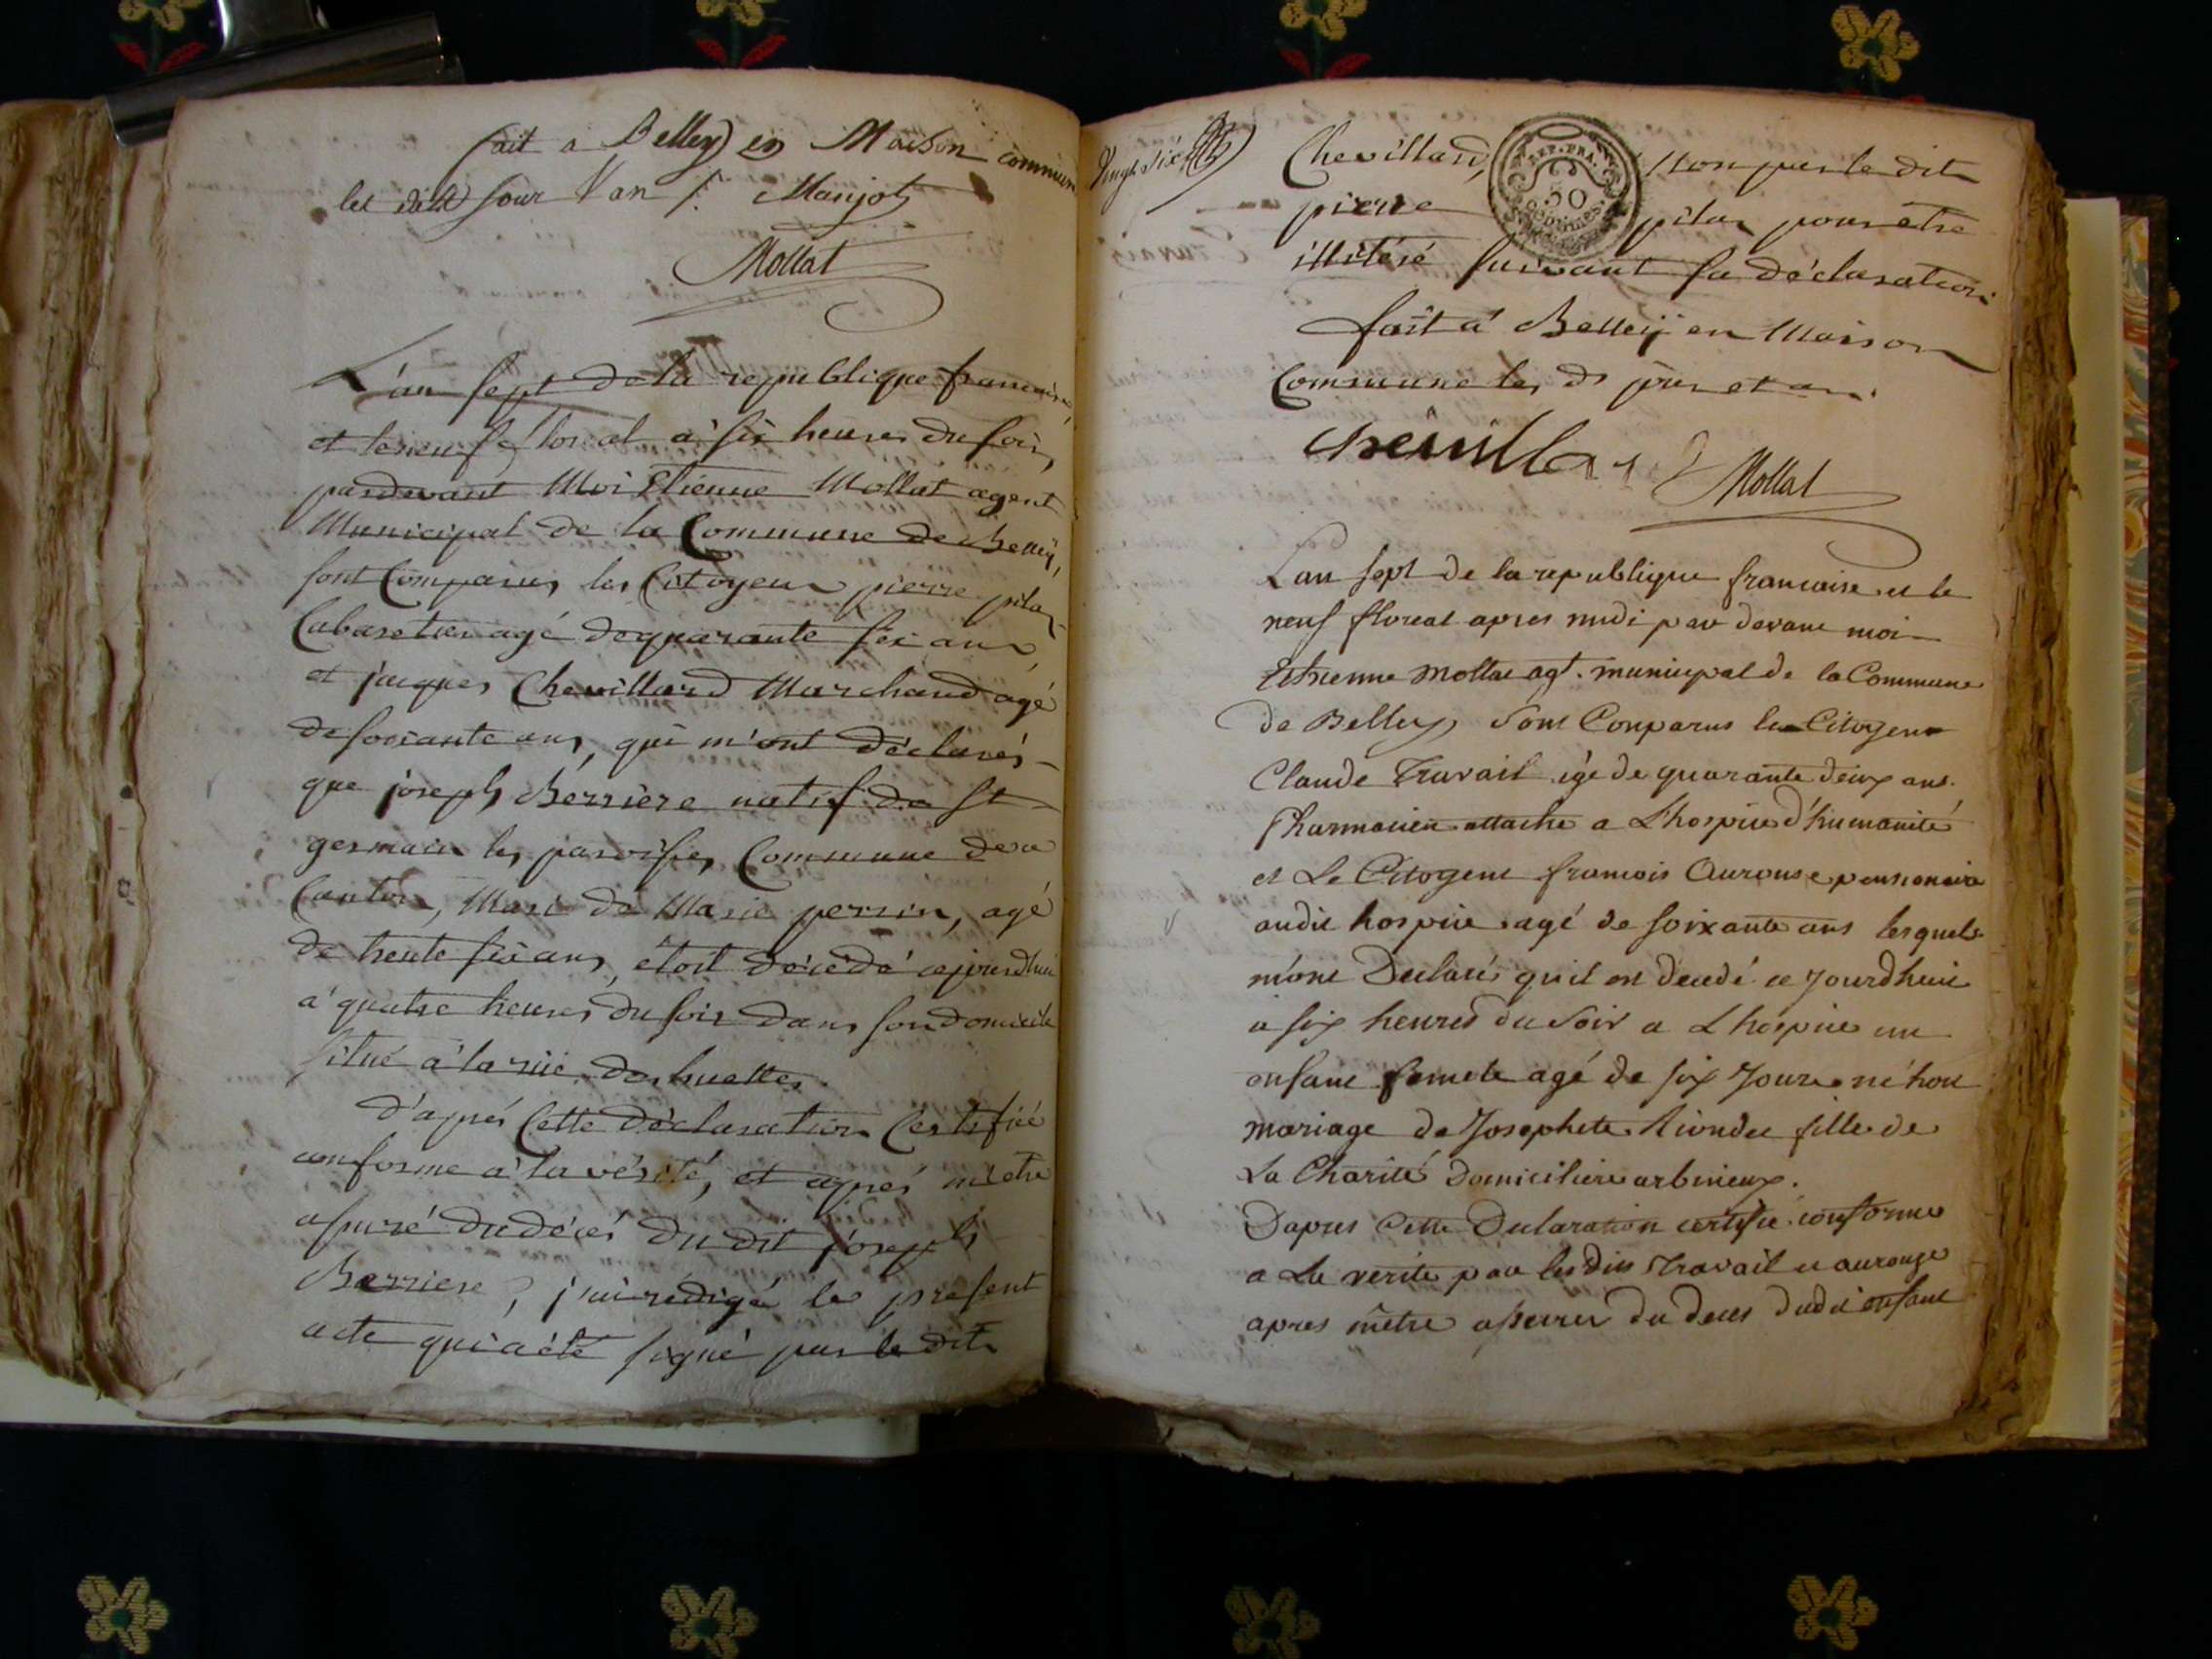 fait a Belley en Maison commune
les dits jour & an /. Manjot
Mollat
L'an sept de la republique francaise,
et le neuf floreal a six heures du soir,
pardevant Moi Etienne Mollat agent
Municipal de la Commune de Belleÿ,
sont Comparus les Citoyens pierre pilaz
Cabaretier agé de quarante six ans
et jacques Chevillard Marchand agé
de soixante ans, qui m'ont déclarés
que joseph Berriere natif de St
germain les paroisses, Commune de ce
Canton, Mari de Marie perrin, agé
de trente six ans, étoit décédé cejourdhui
a quatre heures du soir dans son domicile
situé a la rüe des huettes.
d'aprés Cette déclaration Certifiée
conforme a la vérité, et aprés m'etre
assuré du décés du dit joseph
Berriere, j'ai redigé le present
acte qui a été signé par le dit
Vingt six
Chevillard, Non par le dit
pierre pilaz pour etre
illitéré suivant sa déclaration
fait a Belleÿ en Maison
Commune les ds jour et an.
chevillard Mollat
Lan sept de la republique francaise et le
neuf floreal apres midi par devant moi
Etienne Mollat agt. municipal de la Commune
de Belley sont Comparus les Citoyens
Claude Travail age de quarante deux ans.
Pharmacien attache a Lhospice d'humanité
et Le Citoyent francois Aurouse pensionaire
audit hospice agé de soixante ans lesquels
m'ont Declarés qu'il est decedé ce Jourdhuit
a six heures du Soir a Lhospice un
enfant femele agé de six Jours né hors
mariage de Josephete Riondet fille de
La Charité Domiciliere arbinieux.
Dapres Cette Declaration certifié conforme
a La verite par lesdits Travail et aurouze
apres m'être assurer du deces dudit enfant
REP. FRA.
50
CENTIMES